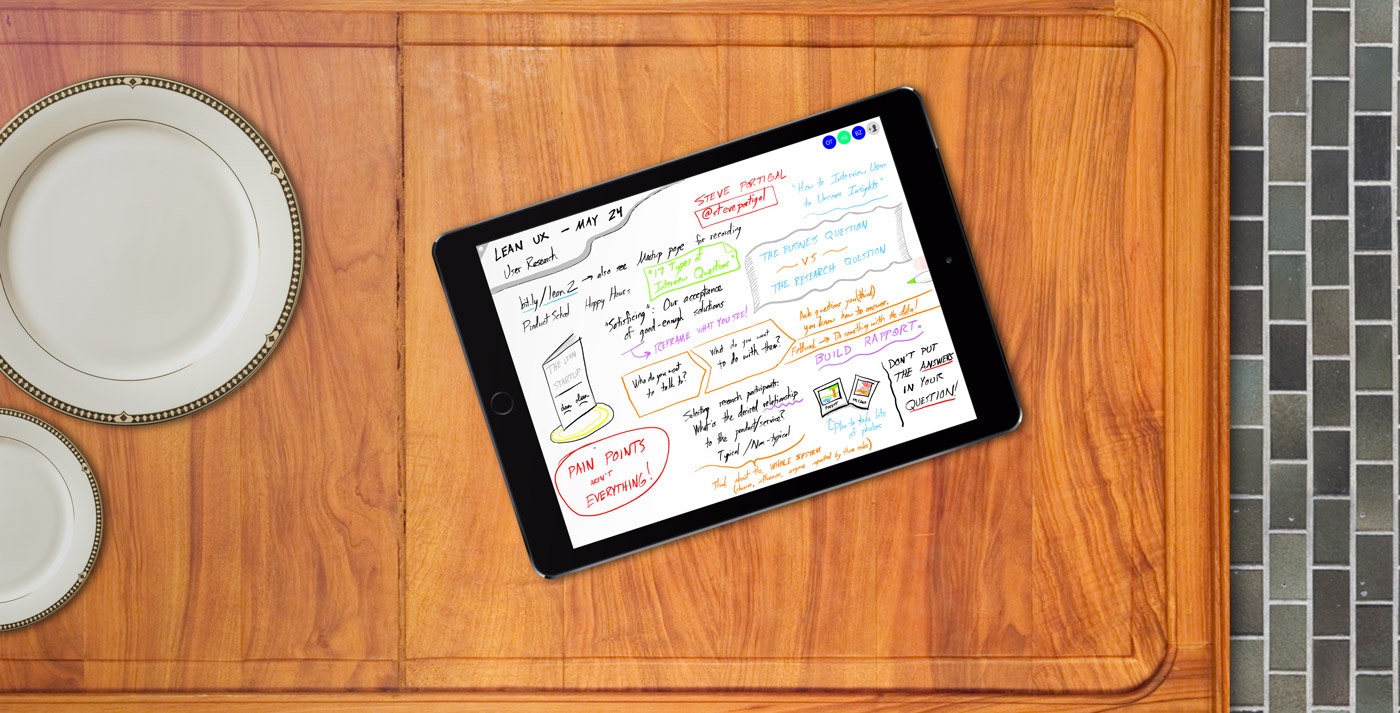 LEAN UX - MAY 24
User Research
bit.ly/lean2 → also see Meetup page for recording
Product School Happy Hours
STEVE PORTIGAL
@steveportigal
"How to Interview User
to Uncover Insights"
"17 Types of
Interview Questions"
THE BUSINESS QUESTION
VS
THE RESEARCH QUESTION
"Satisficing": Our acceptance
of good-enough solutions
REFRAME WHAT YOU SEE!
THE LEAN
STARTUP
Who do you want
to talk to?
What do you want
to do with them?
Ask questions you (think)
you know how to answer.
Followed → Do something with the data!
BUILD RAPPORT.
DON'T PUT
THE ANSWERS
IN YOUR
QUESTION!
Selecting research participants:
What is the desired relationship
to the product/service?
Typical / Non-typical
Plan to take lots
of photos
Think about the WHOLE SYSTEM
PAIN POINTS
AREN'T
EVERYTHING!